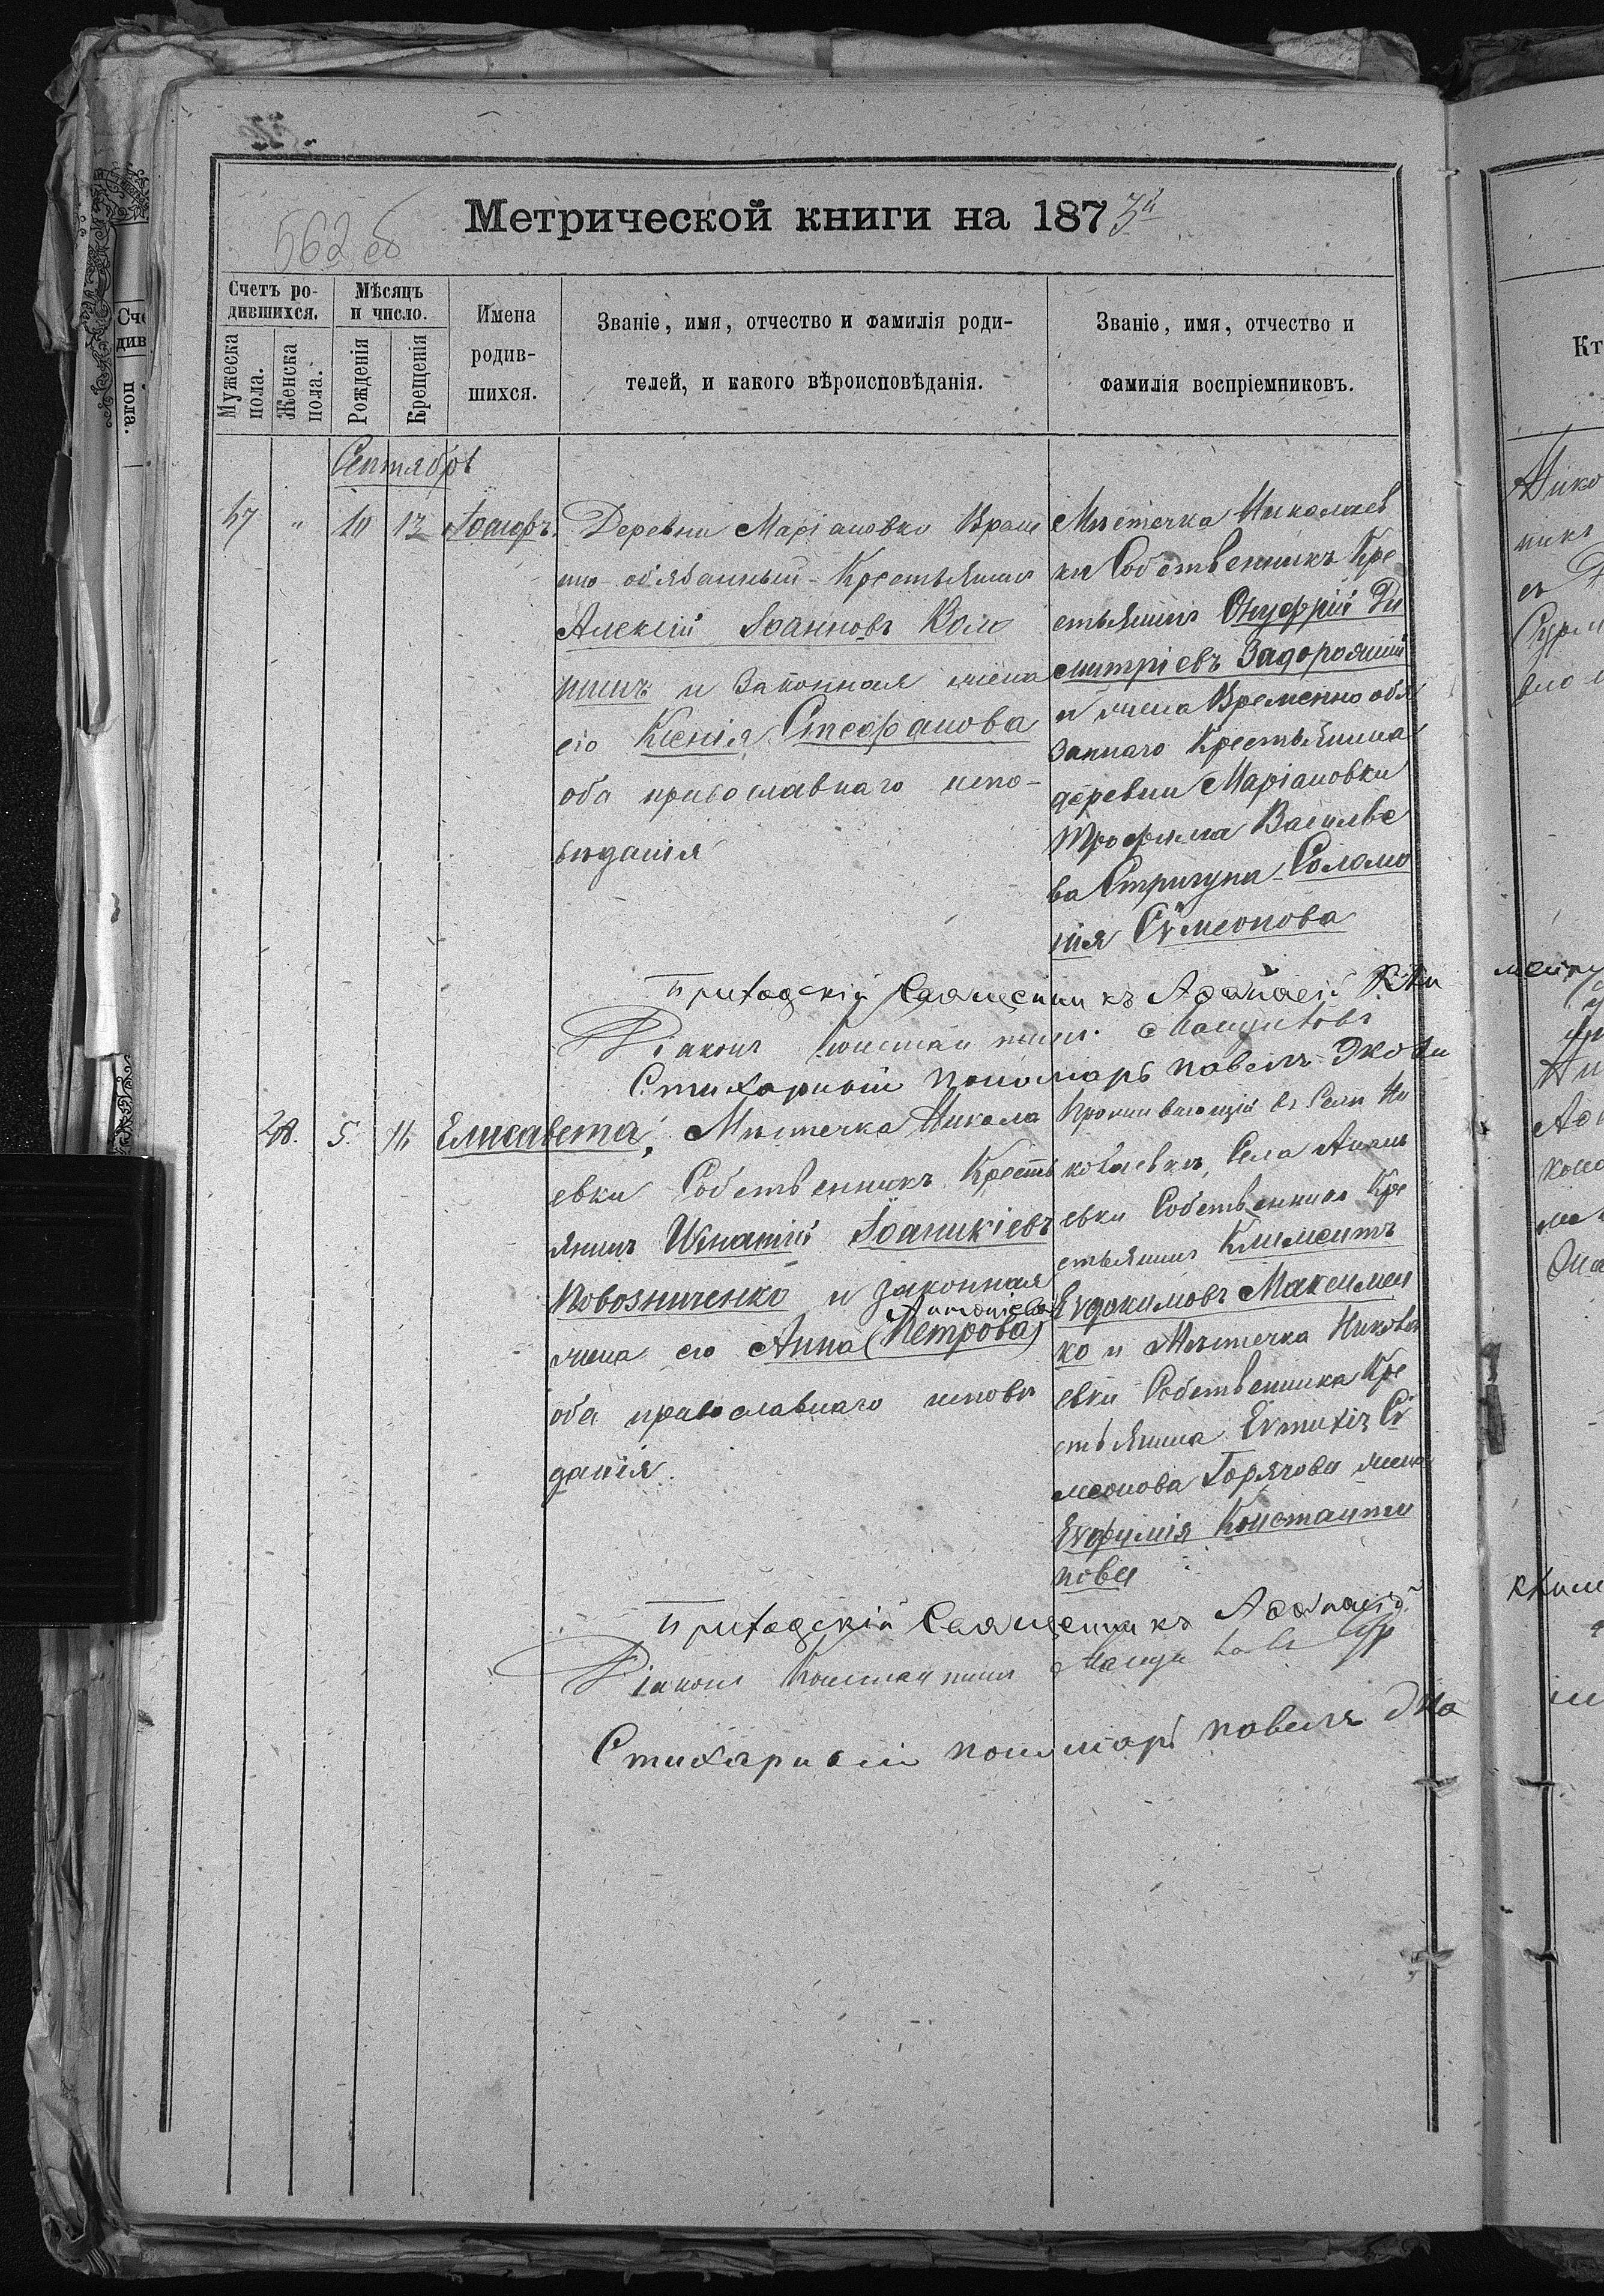 562 об
Метрической книги на 1873й
Счетъ ро-
дившихся.
Мужеска пола.
Женска пола.
Мѣсяцъ
и число.
Рожденія
Крещенія
Имена
родив-
шихся.
Званіе, имя, отчество и фамилія роди-
телей, и какого вѣроисповѣданія.
Званіе, имя, отчество и
фамилія воспріемниковъ.
Сентябрь
57 " 10 13 Іосифъ.
Деревни Маріановки Време
нно-обязанный-Крестьянинъ
Алексій Іоанновъ
и законная жена
его Ксенія Стефанова
оба православнаго испо-
вѣданія
Мѣстечка Николаев
ки Собственникъ Кре
стьянинъ Онуфрій Ди
митріевъ Задорожній
и жена Временно обя
заннаго Крестьянина
деревни Маріановки
Трофима Василье
ва Стригуна Соломо
нія Сѵмеонова
Приходскій Священникъ Аѳанасій
Діаконъ Константинъ
Стихарный пономарь павелъ
48. 5. 16 Елисавета,
Мѣстечка Никола
евки Собственникъ Кресть
янинъ Игнатій Іоаникіевъ
Повозниченко и законная
Антоніева
жена его Анна (Петрова)
оба православнаго исповѣ
данія.
Проживающій въ Селѣ Ни
колаевкѣ, Села
евки Собственникъ Кре
стьянинъ Климентъ
Евдокимовъ Максимен
ко и Мѣстечка Никола
евки Собственника Кре
стьянина Евтихія Сѵ
меонова Горячова жена
Евфимія Константи
нова
Приходскій Священникъ Аѳанасій
Діаконъ Константинъ
Стихарный пономарь павелъ